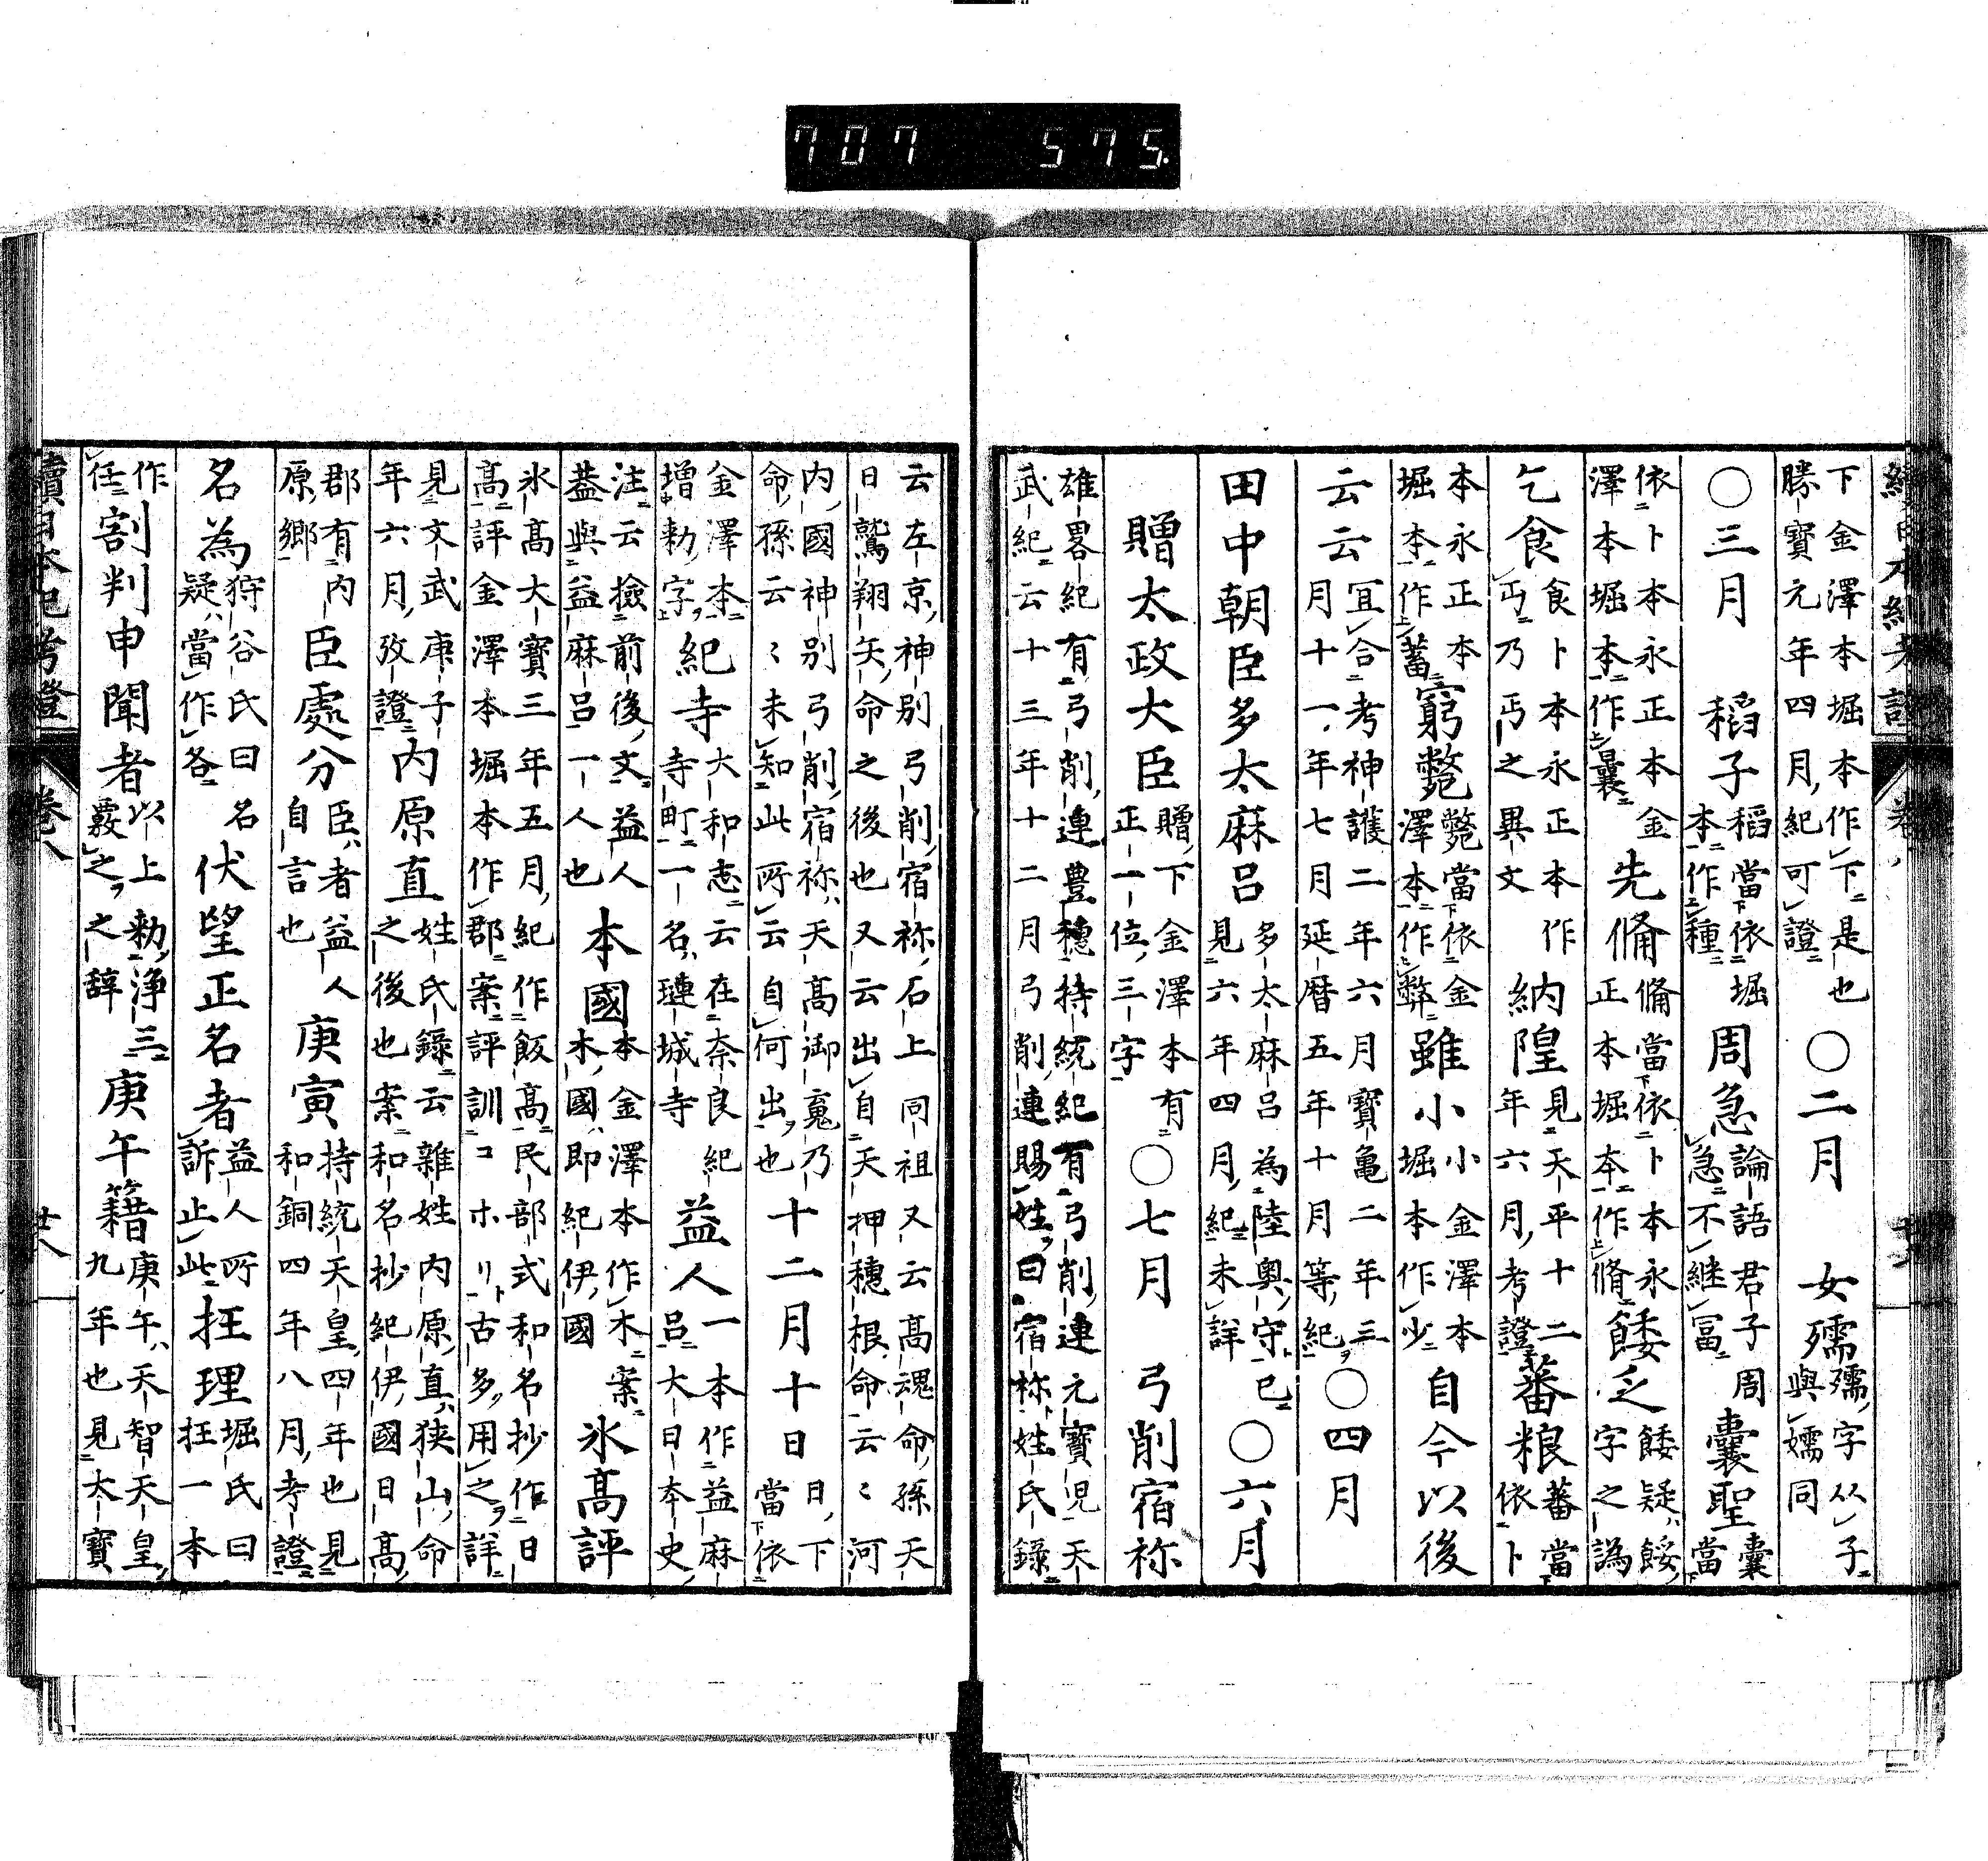 707 575.
續日本紀考證 卷八
下金澤本堀本作下是也 ○二月 女孺 孺字从子
勝寶元年四月紀可證 與嬬同
○三月 稻子 稻當依堀 周急 論語君子周 囊聖 囊當
本作種 急不継冨
依卜本永正本金 先脩 脩當依卜本永 餧乏 餧疑餒
澤本堀本作曩 正本堀本作脩 字之譌
乞食 食卜本永正本作 納隍 見天平十二 蕃粮 蕃當
丏乃丏之異文 年六月考證 依卜
本永正本 窮斃 斃當依金 雖小 小金澤本 自今以後
堀本作蓄 澤本作弊 堀本作少
云云 冝合考神護二年六月寶龜二年三 ○四月
月十一年七月延暦五年十月等紀
田中朝臣多太麻呂 多太麻呂為陸奧守已 ○六月
見六年四月紀未詳
贈太政大臣 贈下金澤本有 ○七月 弓削宿祢
正一位三字
雄畧紀有弓削連豊穗持統紀有弓削連元寶児天
武紀云十三年十二月弓削連賜姓曰宿祢姓氏錄
云左京神別弓削宿祢石上同祖又云高魂命孫天
日鷲翔矢命之後也又云出自天押穗根命云〻河
内國神別弓削宿祢天高御䰟乃 十二月十日 日下
命孫云〻未知此所云自何出也 當依
金澤本 紀寺 大和志云在奈良紀 益人 一本作益麻
增勅字 寺町一名璉城寺 呂大日本史
注云撿前後文益人 本國 本金澤本作木案 氷高評
葢與益麻呂一人也 木國即紀伊國
氷高大寶三年五月紀作飯高民部式和名抄作日
高評金澤本堀本作郡案評訓コホリ古多用之詳
見文武庚子 内原直 姓氏錄云雜姓内原直狹山命
年六月攷證 之後也案和名抄紀伊國日高
郡有内 臣處分 臣者益人 庚寅 持統天皇四年也見
原鄉 自言也 和銅四年八月考證
名為 狩谷氏曰名 伏望正名者 益人所 抂理 堀氏曰
疑當作各 訴止此 抂一本
作 割判申聞者 以上勅浄三 庚午籍 庚午天智天皇
任 覈之之辭 九年也見大寶
續日本紀考證 卷八 廿八